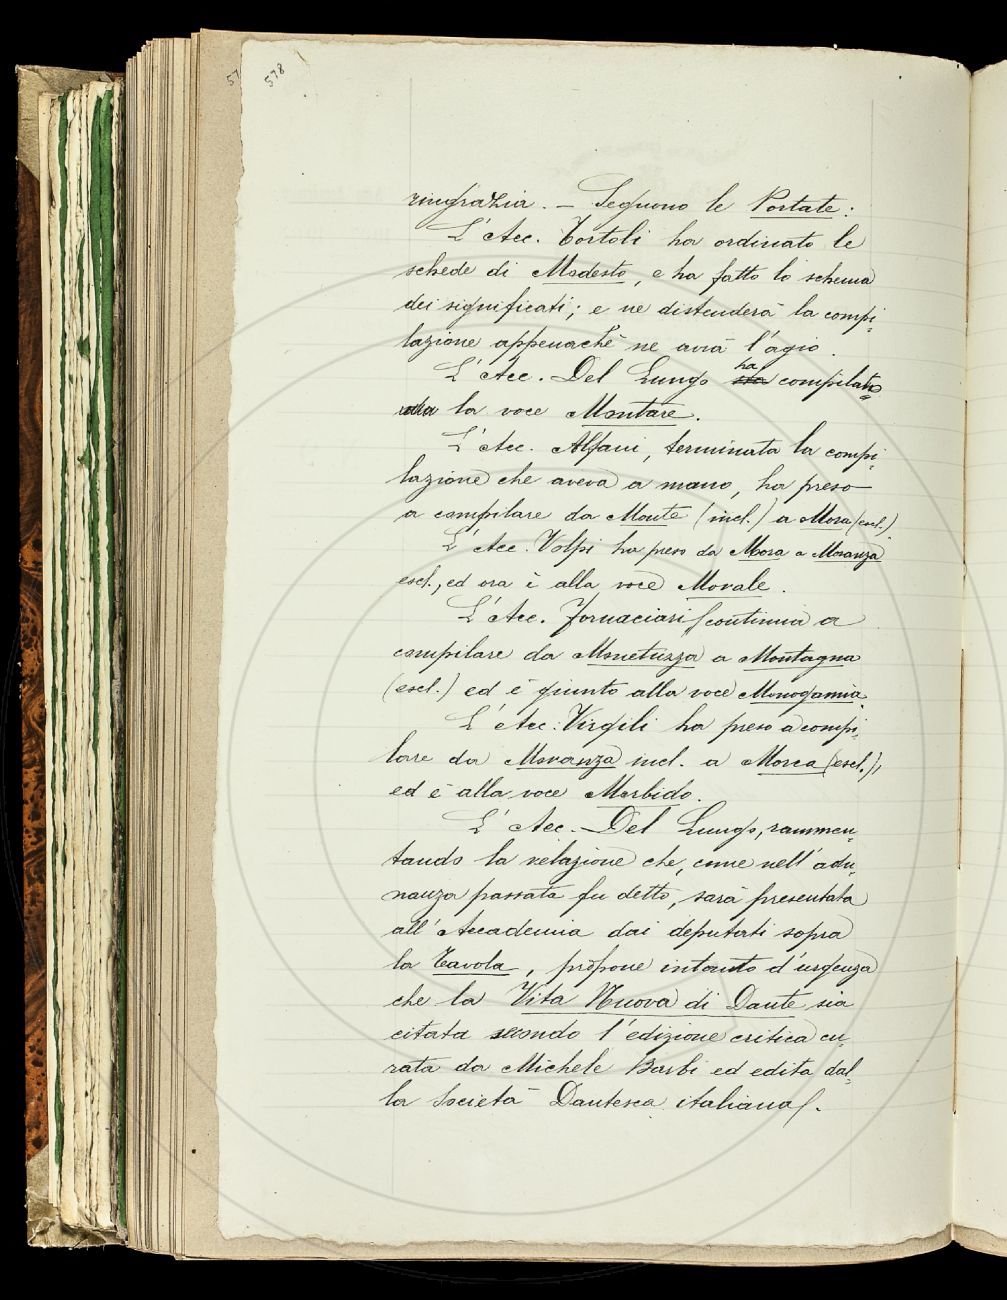 578
ringrazia. – Seguono le Portate:
L'Acc. Tortoli ha ordinato le
schede di Modesto, e ha fatto lo schema
dei significati; e ne distenderà la compi-
lazione appenachè ne avrà l'agio.
L'Acc. Del Lungo ha compilato
la voce Montare.
L'Acc. Alfani, terminata la compi-
lazione che aveva a mano, ha preso
a compilare da Monte (incl.) a Mora (escl.)
L'Acc. Volpi ha preso da Mora a Moranza
escl., ed ora è alla voce Morale.
L'Acc. Fornaciari continua a
compilare da Monetuzza a Montagna
(escl.) ed è giunto alla voce Monogamia.
L'Acc. Virgili ha preso a compi-
lare da Moranza incl. a Morca (escl.),
ed è alla voce Morbido.
L'Acc. Del Lungo, rammen-
tando la relazione che, come nell'adu-
nanza passata fu detto, sarà presentata
all'Accademia dai deputati sopra
la Tavola, propone intanto d'urgenza
che la Vita Nuova di Dante sia
citata secondo l'edizione critica cu-
rata da Michele Barbi ed edita dal-
la Società Dantesca italiana.